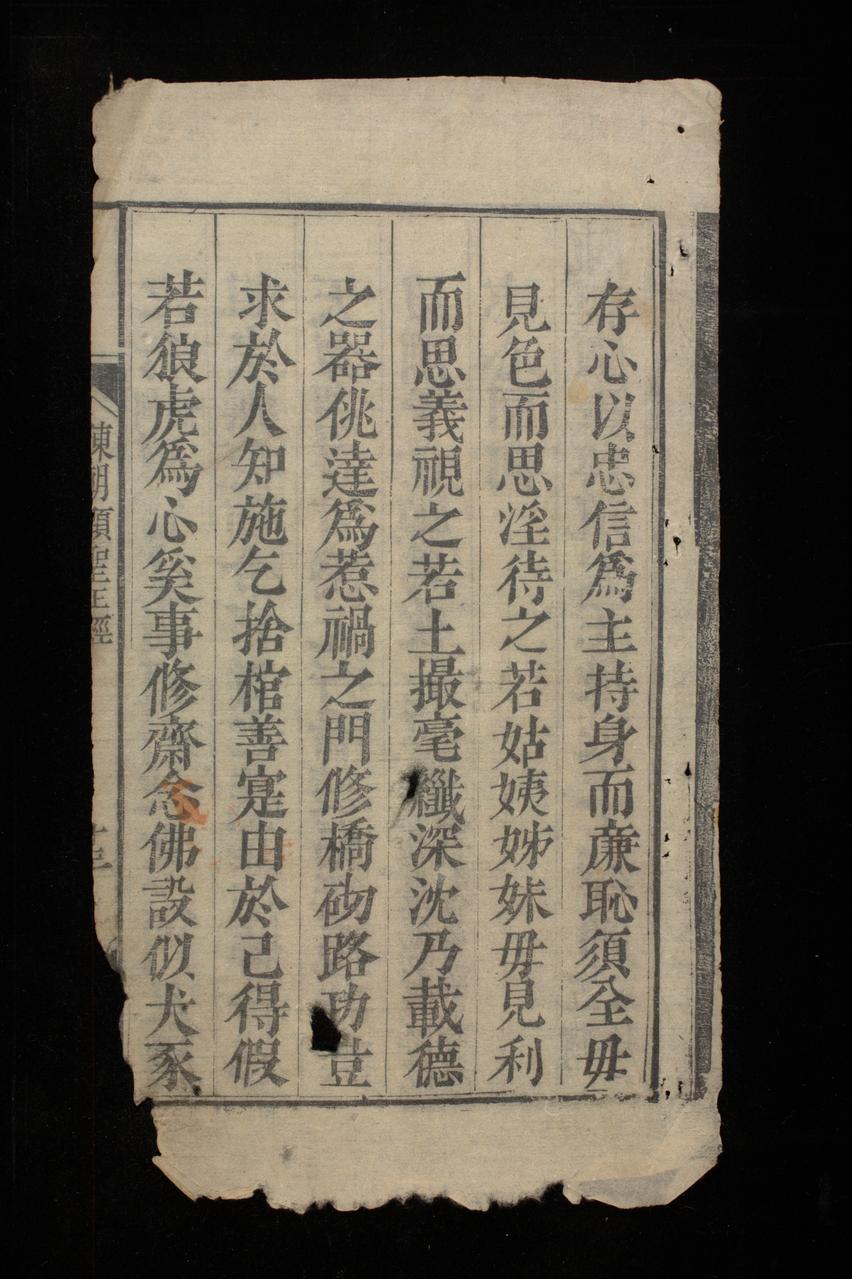 存心以忠信爲主持身而廉恥須全毋
見色而思淫待之若姑姨姊妹毋見利
而思義視之若土撮毫纖深沈乃載德
之器佻達爲惹禍之門修橋砌路功豈
求於人知施乞捨棺善寔由於己得假
若狼虎爲心奚事修齋念佛設似犬豕